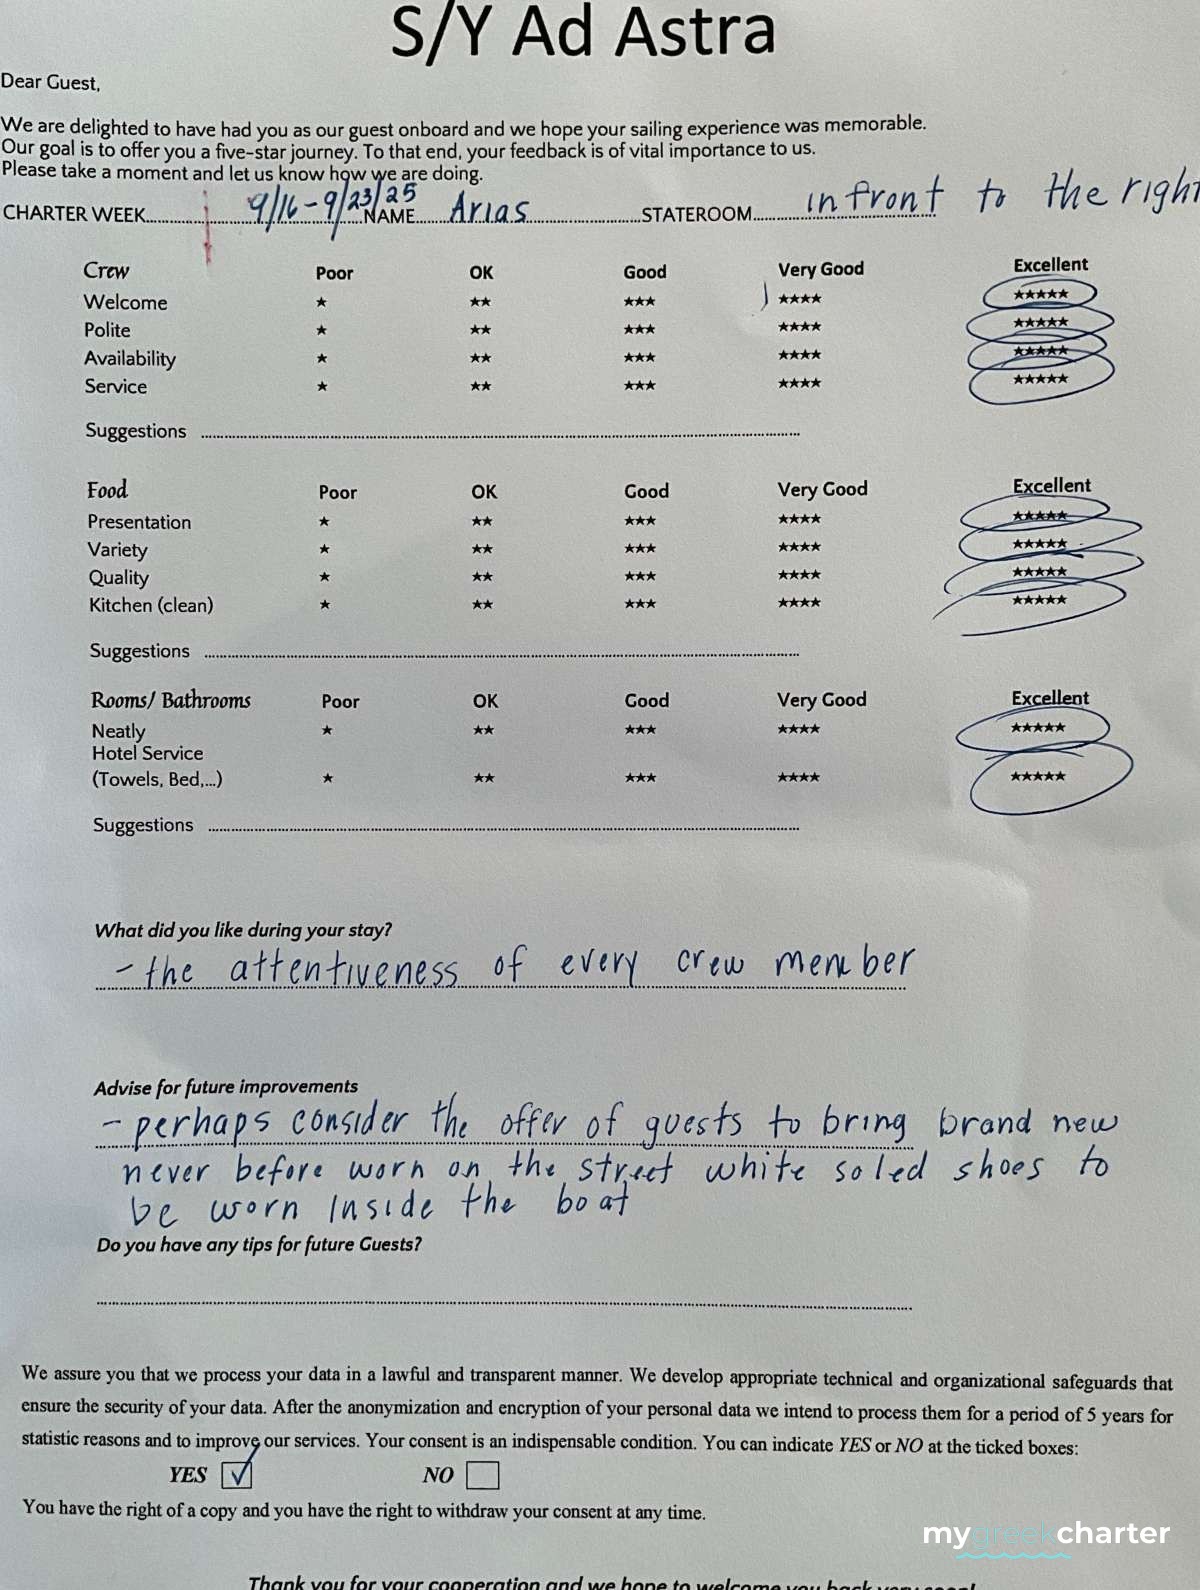 S/Y Ad Astra
Dear Guest,
We are delighted to have had you as our guest onboard and we hope your sailing experience was memorable.
Our goal is to offer you a five-star journey. To that end, your feedback is of vital importance to us.
Please take a moment and let us know how we are doing.
CHARTER WEEK 9/16-9/23/25 NAME Arias STATEROOM in front to the right
Crew Poor OK Good Very Good Excellent
Welcome ★ ★★ ★★★ ★★★★ ★★★★★
Polite ★ ★★ ★★★ ★★★★ ★★★★★
Availability ★ ★★ ★★★ ★★★★ ★★★★★
Service ★ ★★ ★★★ ★★★★ ★★★★★
Suggestions
Food Poor OK Good Very Good Excellent
Presentation ★ ★★ ★★★ ★★★★ ★★★★★
Variety ★ ★★ ★★★ ★★★★ ★★★★★
Quality ★ ★★ ★★★ ★★★★ ★★★★★
Kitchen (clean) ★ ★★ ★★★ ★★★★ ★★★★★
Suggestions
Rooms/ Bathrooms Poor OK Good Very Good Excellent
Neatly ★ ★★ ★★★ ★★★★ ★★★★★
Hotel Service
(Towels, Bed,...) ★ ★★ ★★★ ★★★★ ★★★★★
Suggestions
What did you like during your stay?
- the attentiveness of every crew member
Advise for future improvements
- perhaps consider the offer of guests to bring brand new
never before worn on the street white soled shoes to
be worn inside the boat
Do you have any tips for future Guests?
We assure you that we process your data in a lawful and transparent manner. We develop appropriate technical and organizational safeguards that
ensure the security of your data. After the anonymization and encryption of your personal data we intend to process them for a period of 5 years for
statistic reasons and to improve our services. Your consent is an indispensable condition. You can indicate YES or NO at the ticked boxes:
YES ☑ NO ☐
You have the right of a copy and you have the right to withdraw your consent at any time.
mygreekcharter
Thank you for your cooperation and we hope to welcome you back very soon!